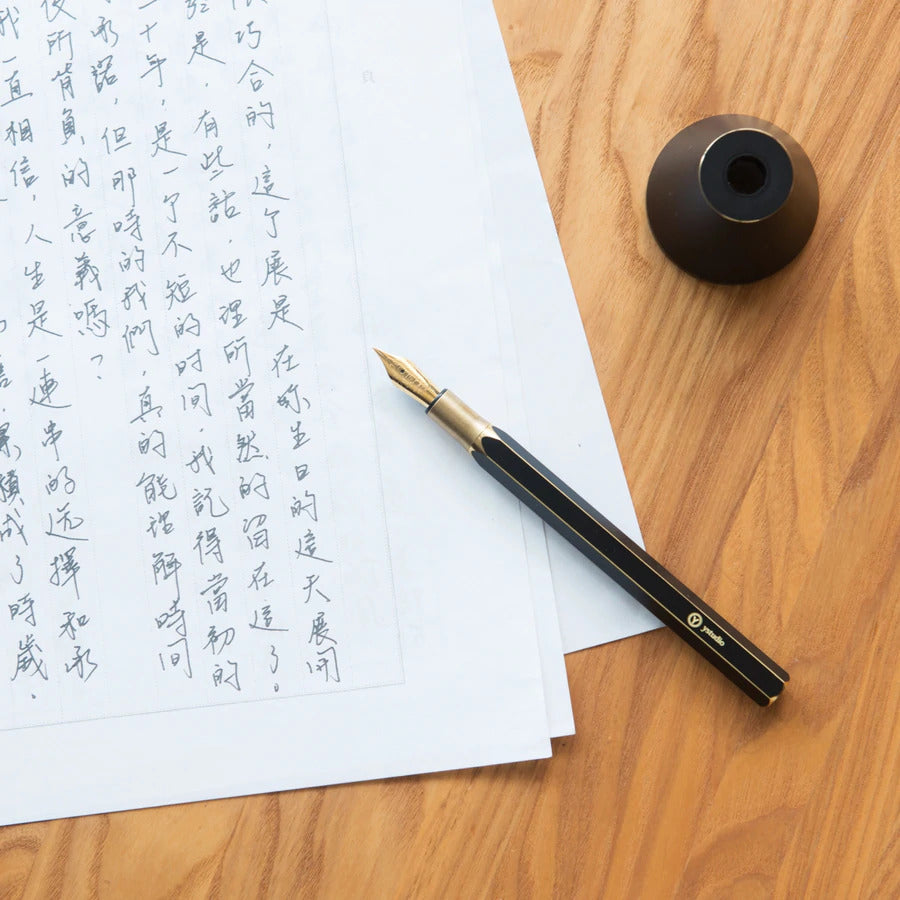 頁
巧合的，這个展是在妳生日的這天展開
是，有些話，也理所當然的留在這了。
二十年，是一个不短的時间，我記得當初的
承諾，但那時的我們，真的能解時间
後所背負的意義嗎？
我一直相信，人生是一連串的选擇和承
累積成了時歲．
Y ystudio